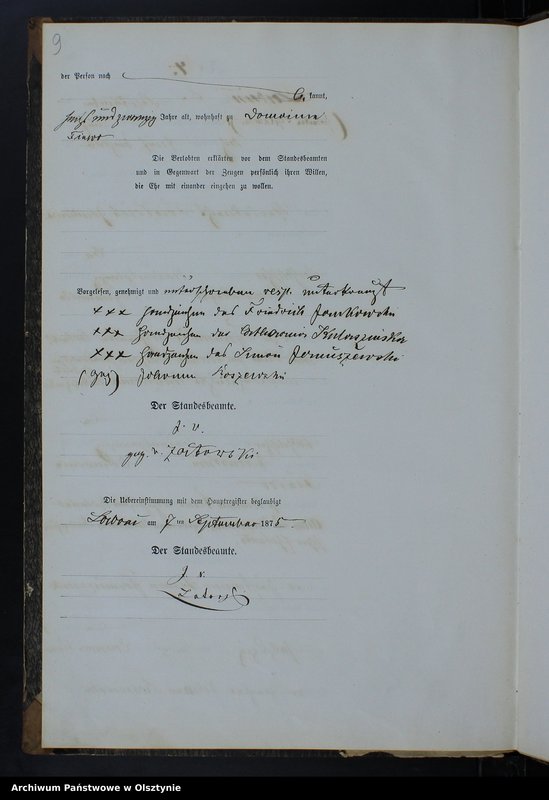 9
der Person nach
kannt,
sechs und zwanzig Jahre alt, wohnhaft zu Domaine
Die Verlobten erklärten vor dem Standesbeamten
und in Gegenwart der Zeugen persönlich ihren Willen,
die Ehe mit einander eingehen zu wollen.
Vorgelesen, genehmigt und unterschrieben resp. unterkreuzt
××× Handzeichen des Friedrich Jankowski
××× Handzeichen der Catharina
××× Handzeichen des Simon Januszewski
(gez) Johann Koszewski
Der Standesbeamte.
J. V.
gez. v.
Die Uebereinstimmung mit dem Hauptregister beglaubigt
am 7 ten September 1875.
Der Standesbeamte.
J. V.
Archiwum Państwowe w Olsztynie